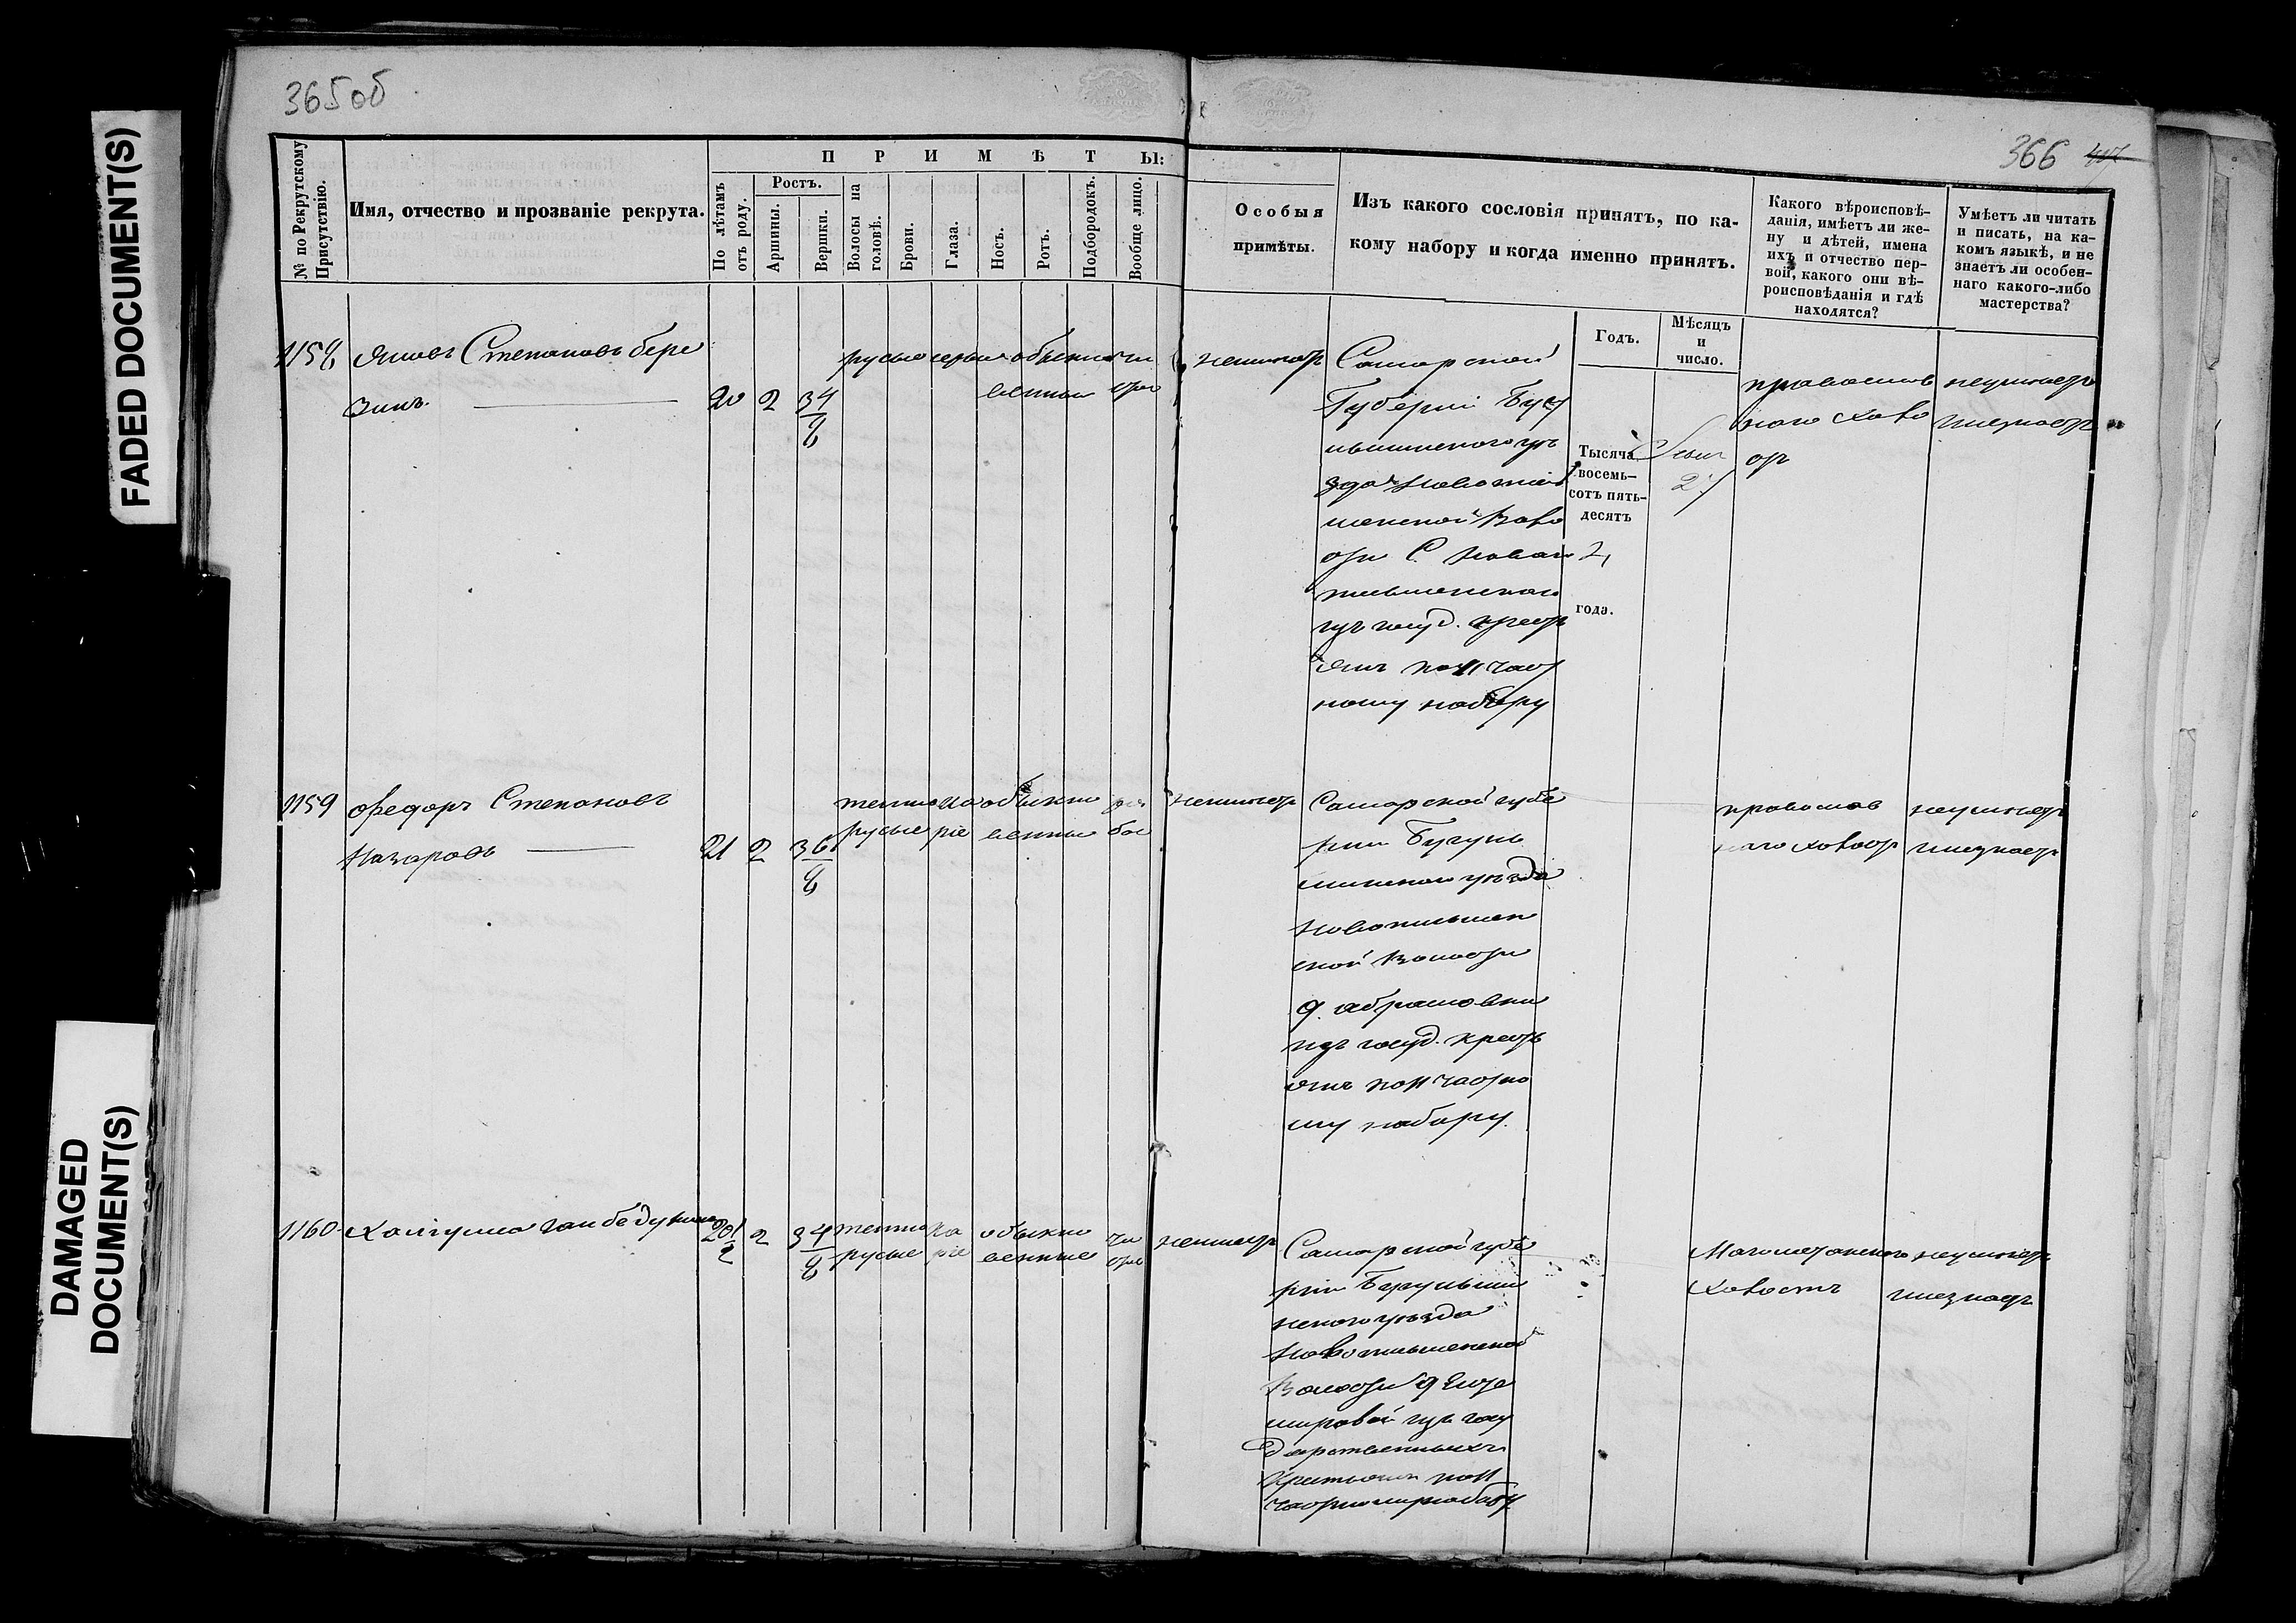 365 об
366
FADED DOCUMENT(S)
DAMAGED
DOCUMENT(S)
№ по Рекрутскому
Присутствію.
Имя, отчество и прозваніе рекрута.
ПРИМѢТЫ:
По лѣтамъ
отъ роду.
Ростъ.
Аршины.
Вершки.
Волосы на
головѣ.
Брови.
Глаза.
Носъ.
Ротъ.
Подбородокъ.
Вообще лицо.
Особыя
примѣты.
Изъ какого сословія принятъ, по ка-
кому набору и когда именно принятъ.
Годъ.
Мѣсяцъ
и
число.
Какого вѣроисповѣ-
данія, имѣетъ ли же-
ну и дѣтей, имена
ихъ и отчество пер-
вой, какого они вѣ-
роисповѣданія и гдѣ
находятся?
Умѣетъ ли читать
и писать, на ка-
комъ языкѣ, и не
знаетъ ли особен-
наго какого-либо
мастерства?
1158
Яковъ Степановъ Бере
зинъ.
20
2
3 4/8
русые
серые
обыкно
венные
чи
стое
неимеет
Самарской
Губерніи Бугу
льминского уѣ
зда Новописьм
менской Воло
сти С. Ново
письменского
изъ госуд. крест
янъ по 11 част
ному набору
Тысяча
восемь-
сотъ пять-
десятъ
2,
года.
православ
наго холо
ст
неумеет
незнает
1159
Федоръ Степановъ
Назаровъ
21
2
3 6/8
темно
русые
ка
ріе
обыкно
венные
ря
бое
неимеет
Самарской губе
рніи Бугуль
минского уѣзда
Новописьмен
ской Волости
д. Абрамовки
изъ госуд. крест
янъ по 11 частно
му набору.
православ
наго холост
неумеет
незнает
1160
2
3 4/8
темно
русые
ка
ріе
обыкно
венные
чи
стое
неимеет
Самарской губе
рніи Бугульми
нского уѣзда
Новописьменской
Волости д.
изъ госу
дарственныхъ
крестьянъ по 11
частному набору
Магометанского
холостъ
неумеет
незнает